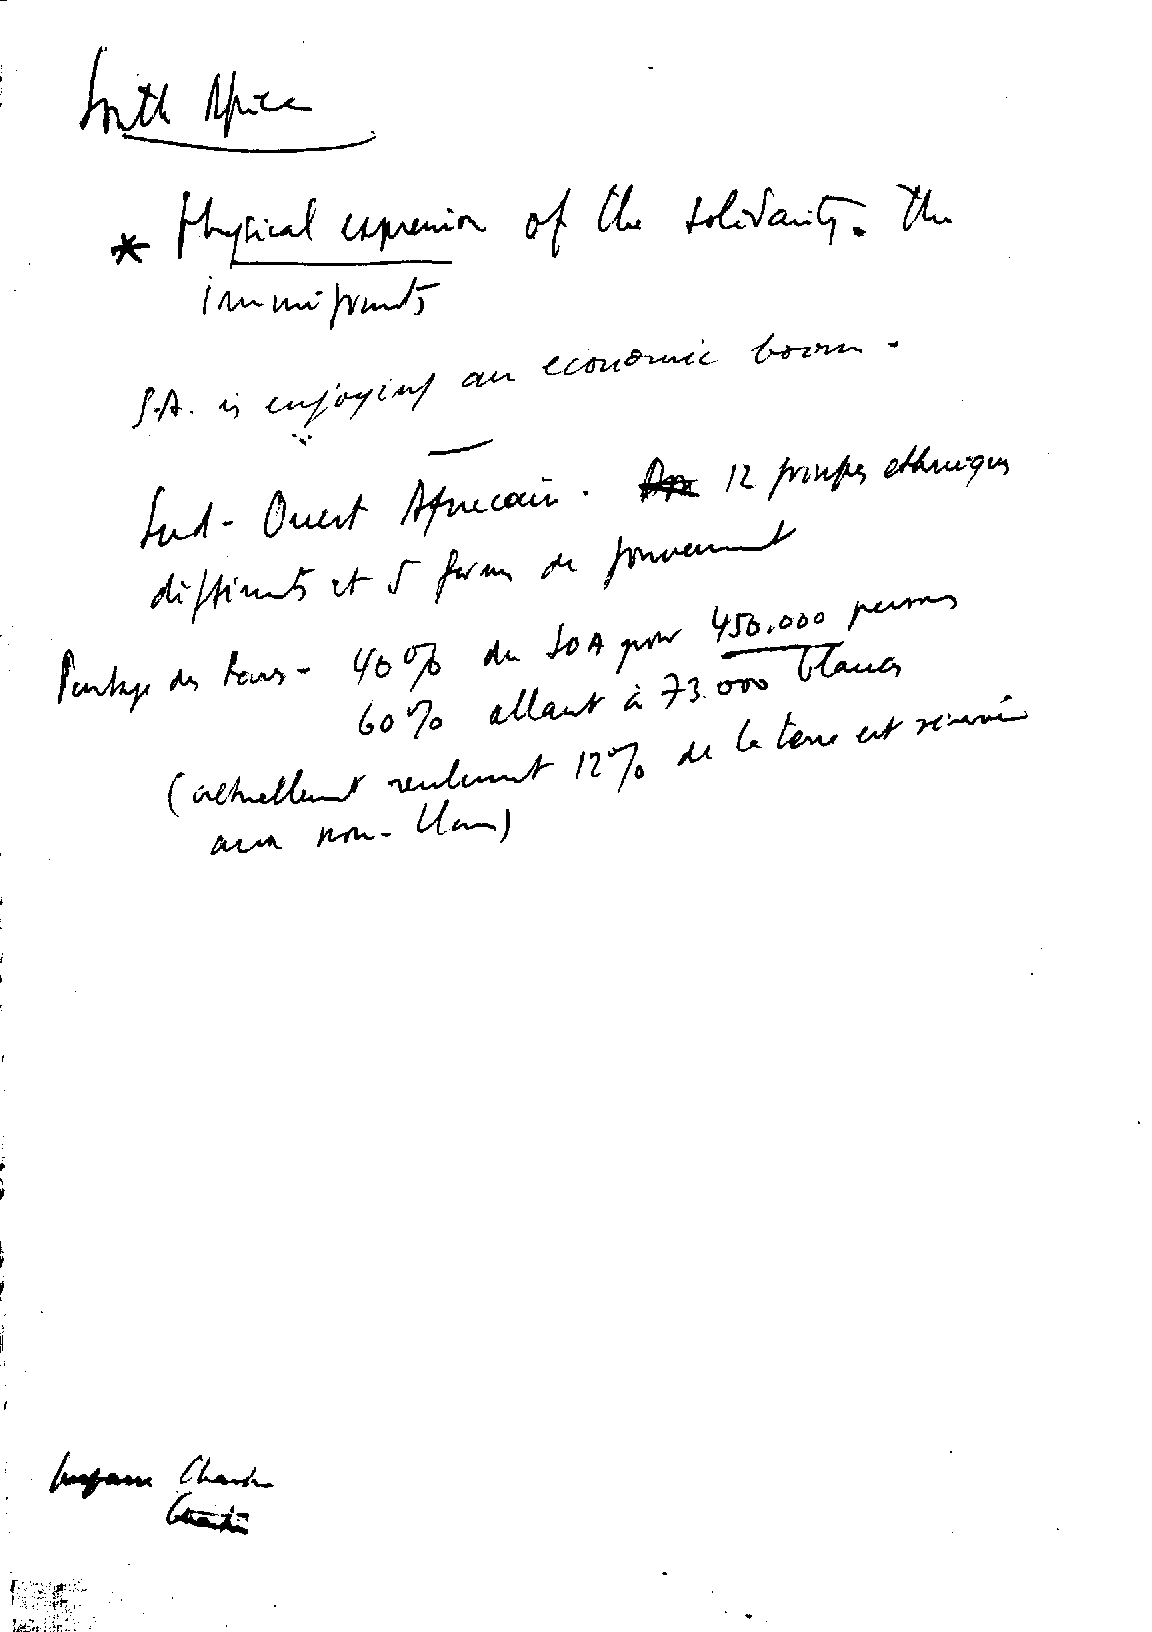 South Africa
* Physical expression of the solidarity. The
immigrants
S.A. is enjoying an economic boom.
Sud-Ouest Africain. 12 groupes ethniques
différents et 5 formes de gouvernement
Partage des terres - 40% du SOA pour 450.000 personnes
60% allant à 73.000 blancs
(actuellement seulement 12% de la terre est réservée
aux non-blancs)